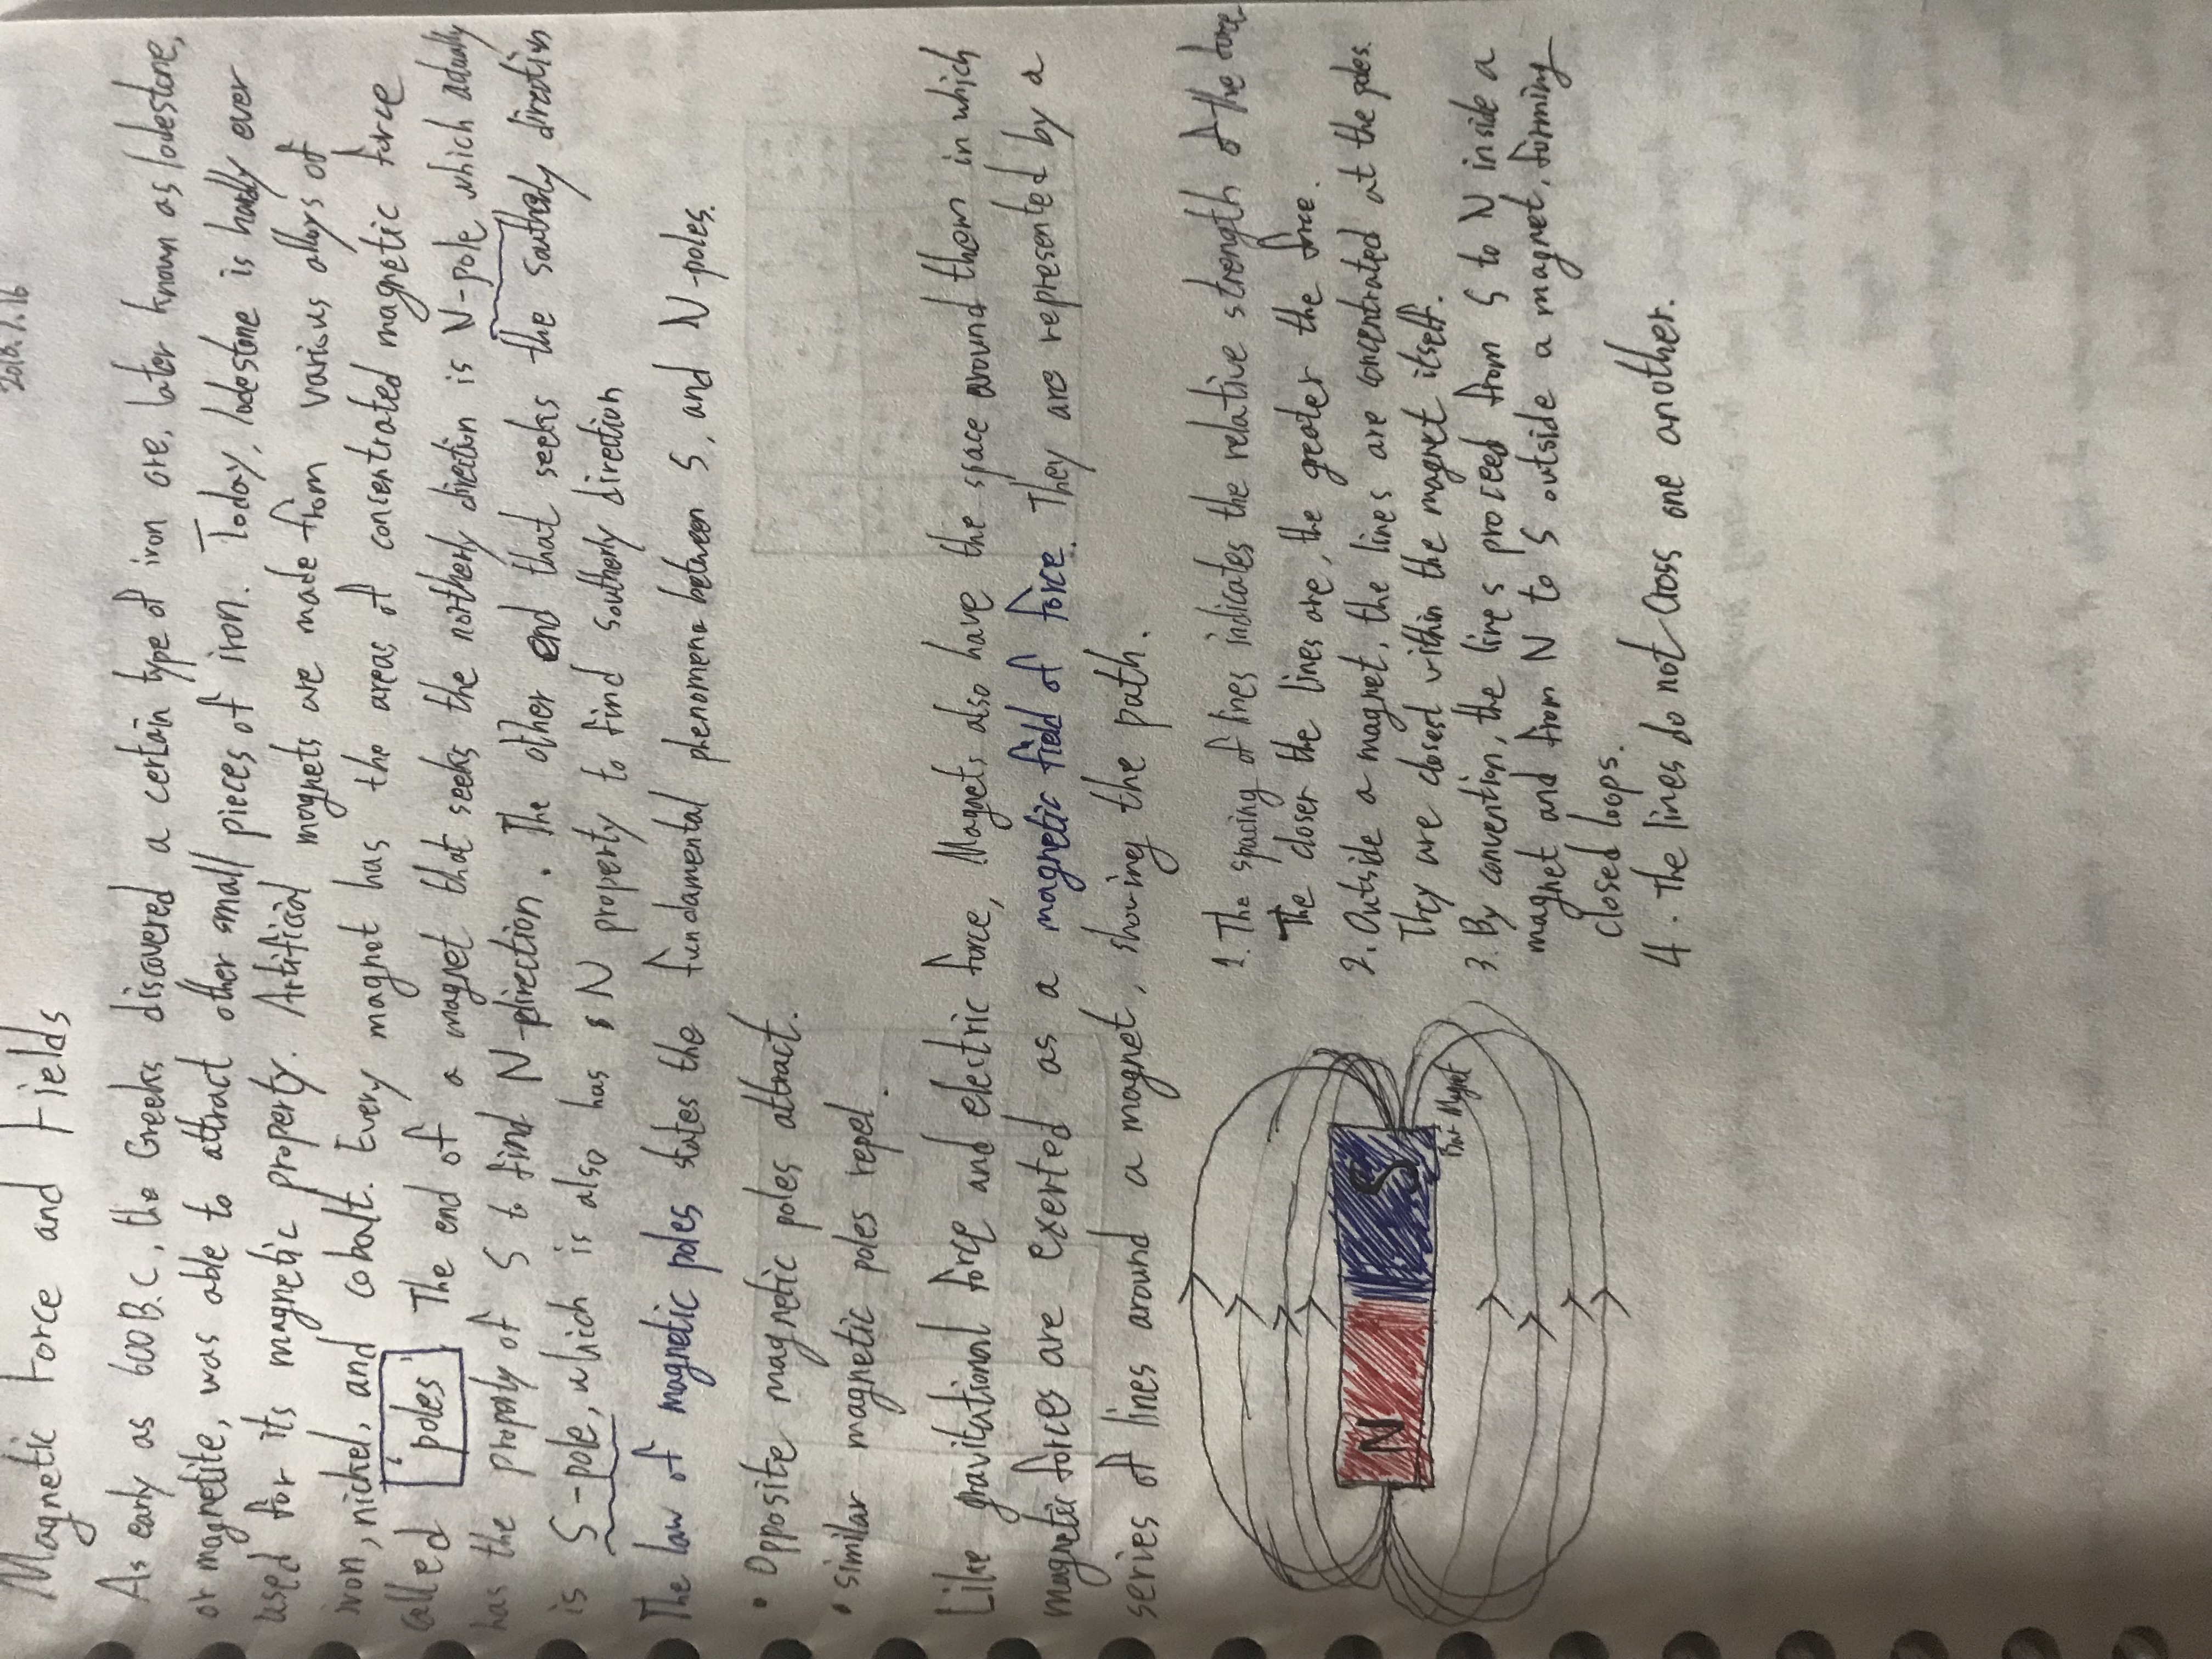 Magnetic Force and Fields
As early as 600 B.C, the Greeks discovered a certain type of iron ore, later known as lodestone,
or magnetite, was able to attract other small pieces of iron. Today, lodestone is hardly ever
used for its magnetic property. Artificial magnets are made from various alloys of
iron, nickel, and cobalt. Every magnet has the areas of concentrated magnetic force
called 'poles' The end of a magnet that seeks the northerly direction is N-pole which actually
has the property of S to find N-direction. The other end that seeks the southerly direction
is S-pole, which is also has N property to find southerly direction
The law of magnetic poles states the fundamental phenomena between S, and N-poles.
• Opposite magnetic poles attract.
• similar magnetic poles repel.
Like gravitational force and electric force, Magnets also have the space around them in which
magnetic forces are exerted as a magnetic field of force. They are represented by a
series of lines around a magnet, showing the path.
1. The spacing of lines indicates the relative strength of the force
The closer the lines are, the greater the force.
2. Outside a magnet, the lines are concentrated at the poles.
They are closest within the magnet itself.
3. By convention, the lines proceed from S to N inside a
magnet and from N to S outside a magnet, forming
closed loops.
4. The lines do not cross one another.
N
S
Bar Magnet